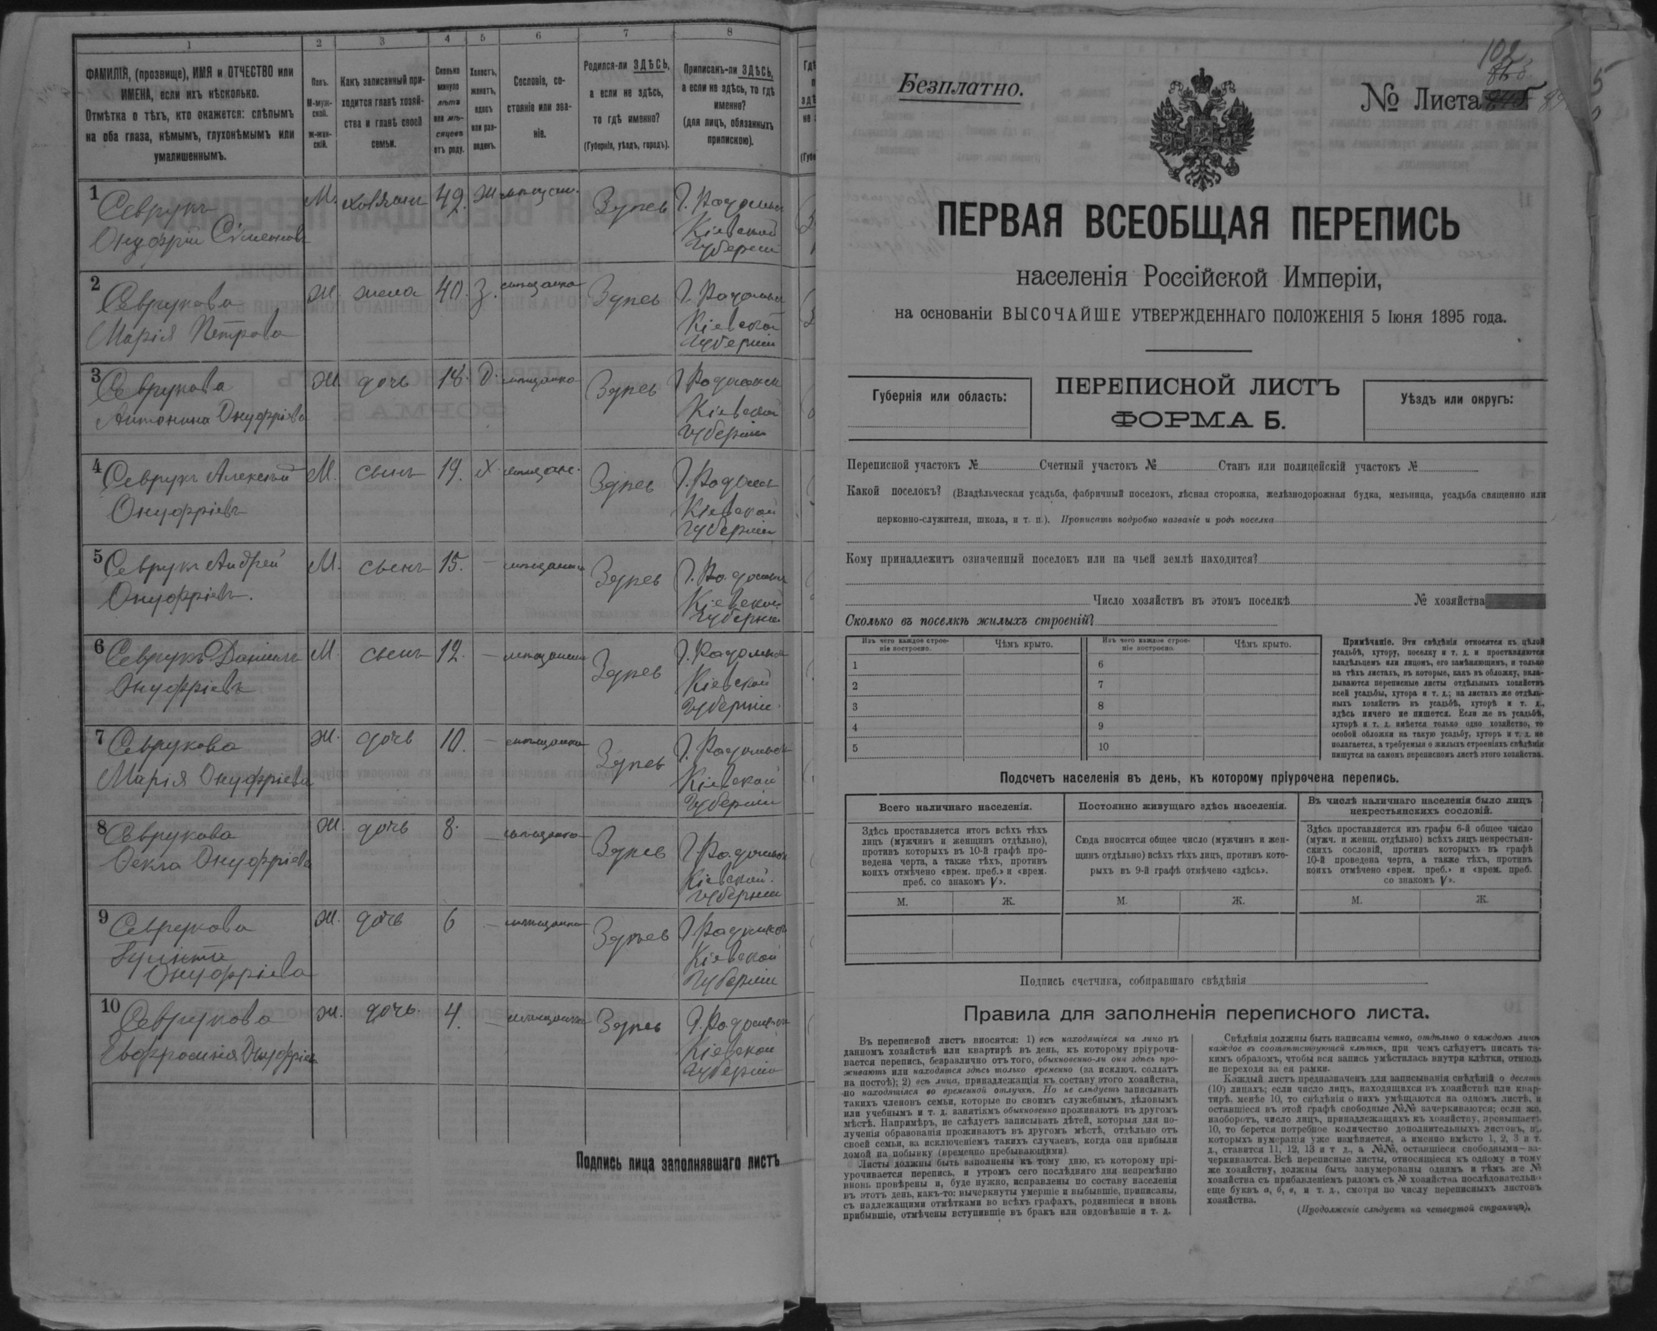 1
2
3
4
5
6
7
8
ФАМИЛІЯ, (прозвище), ИМЯ и ОТЧЕСТВО или
ИМЕНА, если ихъ нѣсколько.
Отмѣтка о тѣхъ, кто окажется: слѣпымъ
на оба глаза, нѣмымъ, глухонѣмымъ или
умалишеннымъ.
Полъ.
М-муж-
ской.
Ж-жен-
скій.
Какъ записанный при-
ходится главѣ хозяй-
ства и главѣ своей
семьи.
Сколько
минуло
лѣтъ
или мѣ-
сяцевъ
отъ роду.
Холостъ,
женатъ,
вдовъ
или раз-
веденъ.
Сословіе, со-
стояніе или зва-
ніе.
Родился-ли ЗДѢСЬ,
а если не здѣсь,
то гдѣ именно?
(Губернія, уѣздъ, городъ).
Приписанъ-ли ЗДѢСЬ,
а если не здѣсь, то гдѣ
именно?
(для лицъ, обязанныхъ
припискою).
1 Севрукъ М. хозяинъ 49. Ж мѣщан. Здѣсь Г. Радомысл
Онуфрій Сѣменовъ Кіевской
Губерніи
2 Севрукова Ж. жена 40. З. мѣщанка Здѣсь Г. Радомысл
Марія Петрова Кіевской
Губерніи
3 Севрукова Ж дочь 18. Д. мѣщанка Здѣсь Г. Радомысл
Антонина Онуфріева Кіевской
Губерніи
4 Севрукъ Алексѣй М. сынъ 19. Х мѣщан. Здѣсь Г. Радомысл
Онуфріевъ Кіевской
Губерніи
5 Севрукъ Андрей М. сынъ 15. — Здѣсь Г. Радомысл
Онуфріевъ. Кіевской
Губерніи
6 Севрукъ Даніилъ М. сынъ 12. — Здѣсь Г. Радомысл
Онуфріевъ Кіевской
Губерніи.
7 Севрукова Ж. дочь 10. — мѣщанка Здѣсь Г. Радомысл
Марія Онуфріева Кіевской
Губерніи
8 Севрукова Ж. дочь 8. — мѣщанка Здѣсь Г. Радомысл
Ѳекла Онуфріева Кіевской.
Губерніи
9 Севрукова Ж. дочь 6 — мѣщанка Здѣсь Г. Радомысл
Онуфріева Кіевской
Губерніи
10 Севрукова Ж. дочь. 4. — мѣщанка Здѣсь Г. Радомысл
Евфросинія Онуфріев Кіевской
Губерніи
Подпись лица заполнявшаго листъ
102
Безплатно.
№ Листа
ПЕРВАЯ ВСЕОБЩАЯ ПЕРЕПИСЬ
населенія Россійской Имперіи,
на основаніи ВЫСОЧАЙШЕ УТВЕРЖДЕННАГО ПОЛОЖЕНІЯ 5 Іюня 1895 года.
Губернія или область:
ПЕРЕПИСНОЙ ЛИСТЪ
ФОРМА Б.
Уѣздъ или округъ:
Переписной участокъ № Счетный участокъ № Станъ или полицейскій участокъ №
Какой поселокъ? (Владѣльческая усадьба, фабричный поселокъ, лѣсная сторожка, желѣзнодорожная будка, мельница, усадьба священно или
церковно-служителя, школа, и т. п.). Прописать подробно названіе и родъ поселка
Кому принадлежитъ означенный поселокъ или на чьей землѣ находится?
Число хозяйствъ въ этомъ поселкѣ № хозяйства
Сколько въ поселкѣ жилыхъ строеній?
Изъ чего каждое строе-
ніе построено.
Чѣмъ крыто.
Изъ чего каждое строе-
ніе построено.
Чѣмъ крыто.
1 6
2 7
3 8
4 9
5 10
Примѣчаніе. Эти свѣдѣнія относятся къ цѣлой
усадьбѣ, хутору, поселку и т. д. и проставляются
владѣльцемъ или лицомъ, его замѣняющимъ, и только
на тѣхъ листахъ, въ которые, какъ въ обложку, вкла-
дываются переписные листы отдѣльныхъ хозяйствъ
всей усадьбы, хутора и т. д.; на листахъ же отдѣль-
ныхъ хозяйствъ въ усадьбѣ, хуторѣ и т. д.,
здѣсь ничего не пишется. Если же въ усадьбѣ,
хуторѣ и т. д. имѣется только одно хозяйство, то
особой обложки на такую усадьбу, хуторъ и т. д. не
полагается, а требуемыя о жилыхъ строеніяхъ свѣдѣнія
пишутся на самомъ переписномъ листѣ этого хозяйства.
Подсчетъ населенія въ день, къ которому пріурочена перепись.
Всего наличнаго населенія.
Постоянно живущаго здѣсь населенія.
Въ числѣ наличнаго населенія было лицъ
некрестьянскихъ сословій.
Здѣсь проставляется итогъ всѣхъ тѣхъ
лицъ (мужчинъ и женщинъ отдѣльно),
противъ которыхъ въ 10-й графѣ про-
ведена черта, а также тѣхъ, противъ
коихъ отмѣчено «врем. преб.» и «врем.
преб. со знакомъ V».
Сюда вносится общее число (мужчинъ и жен-
щинъ отдѣльно) всѣхъ тѣхъ лицъ, противъ кото-
рыхъ въ 9-й графѣ отмѣчено «здѣсь».
Здѣсь проставляется изъ графы 6-й общее число
(мужч. и женщ. отдѣльно) всѣхъ лицъ некрестьян-
скихъ сословій, противъ которыхъ въ графѣ
10-й проведена черта, а также тѣхъ, противъ
коихъ отмѣчено «врем. преб.» и «врем. преб.
со знакомъ V».
М. Ж. М. Ж. М. Ж.
Подпись счетчика, собиравшаго свѣдѣнія
Правила для заполненія переписного листа.
Въ переписной листъ вносятся: 1) всѣ находящіеся на лицо въ
данномъ хозяйствѣ или квартирѣ въ день, къ которому пріурочи-
вается перепись, безразлично отъ того, обыкновенно-ли они здѣсь про-
живаютъ или находятся здѣсь только временно (за исключ. солдатъ
на постоѣ); 2) всѣ лица, принадлежащія къ составу этого хозяйства,
но находящіяся во временной отлучкѣ. Но не слѣдуетъ записывать
такихъ членовъ семьи, которые по своимъ служебнымъ, дѣловымъ
или учебнымъ и т. д. занятіямъ обыкновенно проживаютъ въ другомъ
мѣстѣ. Напримѣръ, не слѣдуетъ записывать дѣтей, которыя для по-
лученія образованія проживаютъ въ другомъ мѣстѣ, отдѣльно отъ
своей семьи, за исключеніемъ такихъ случаевъ, когда они прибыли
домой на побывку (временно пребывающими)
Листы должны быть заполнены къ тому дню, къ которому прі-
урочивается перепись, и утромъ сего послѣдняго дня непремѣнно
вновь провѣрены и, буде нужно, исправлены по составу населенія
въ этотъ день, какъ-то: вычеркнуты умершіе и выбывшіе, приписаны,
съ надлежащими отмѣтками во всѣхъ графахъ, родившіеся и вновь
прибывшіе, отмѣчены вступившіе въ бракъ или овдовѣвшіе и т. д.
Свѣдѣнія должны быть написаны четко, отдѣльно о каждомъ лицѣ
каждое въ соотвѣтствующей клѣткѣ, при чемъ слѣдуетъ писать та-
кимъ образомъ, чтобы вся запись умѣстилась внутри клѣтки, отнюдь
не переходя за ея рамки.
Каждый листъ предназначенъ для записыванія свѣдѣній о десяти
(10) лицахъ; если число лицъ, находящихся въ хозяйствѣ или квар-
тирѣ, менѣе 10, то свѣдѣнія о нихъ умѣщаются на одномъ листѣ, и
оставшіеся въ этой графѣ свободные №№ зачеркиваются; если же,
наоборотъ, число лицъ, принадлежащихъ къ хозяйству, превышаетъ
10, то берется потребное количество дополнительныхъ листовъ, въ
которыхъ нумерація уже измѣняется, а именно вмѣсто 1, 2, 3 и т.
д., ставится 11, 12, 13 и т д., а №№, оставшіеся свободными—за-
черкиваются. Всѣ переписные листы, относящіеся къ одному и тому
же хозяйству, должны быть занумерованы однимъ и тѣмъ же №
хозяйства съ прибавленіемъ рядомъ съ № хозяйства послѣдовательно
еще буквъ а, б, в, и т. д., смотря по числу переписныхъ листовъ
хозяйства.
(Продолженіе слѣдуетъ на четвертой страницѣ).